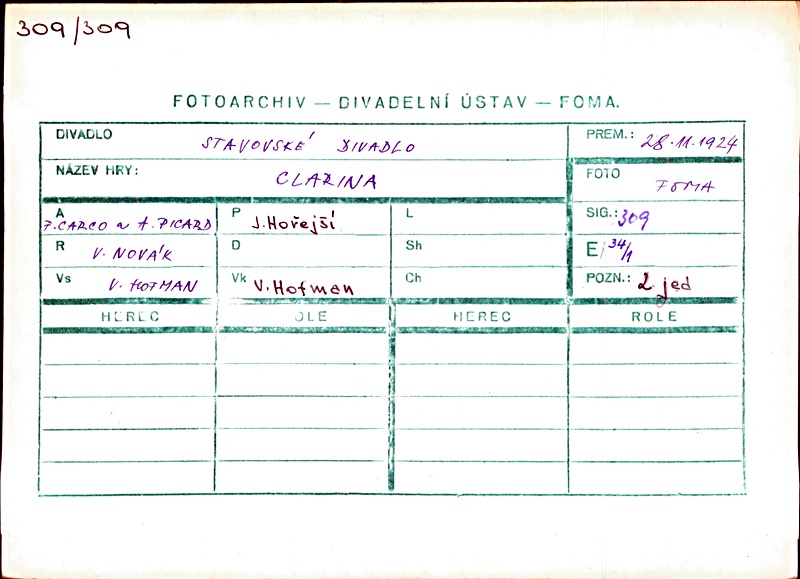 309/309
FOTOARCHIV — DIVADELNÍ ÚSTAV — FOMA.
DIVADLO STAVOVSKÉ DIVADLO PREM.: 28.11.1924
NÁZEV HRY: CLARINA FOTO FOMA
A F. CARCO a A. PICARD P J. Hořejší L SIG.: 309
R V. NOVÁK D Sh E/34/1
Vs V. HOFMAN Vk V. Hofmen Ch POZN.: 2 jed
HEREC OLE HEREC ROLE